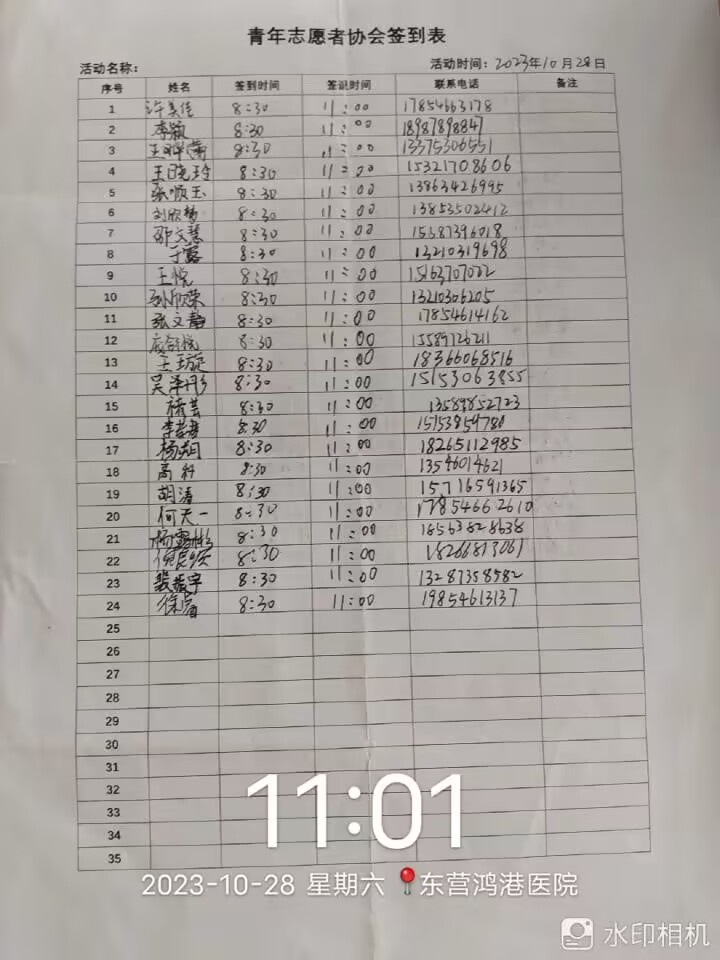 青年志愿者协会签到表
活动名称： 活动时间：2023年10月28日
序号 姓名 签到时间 签退时间 联系电话 备注
1 许美佳 8:30 11:00 17854663178
2 李颖 8:30 11:00 18987898847
3 8:30 11:00 13375306551
4 王晓玲 8:30 11:00 15321708606
5 张顺玉 8:30 11:00 13863426995
6 刘欣楠 8:30 11:00 13853502412
7 邵文慧 8:30 11:00 15387396018
8 于露 8:30 11:00 13210319698
9 王悦 8:30 11:00 15163707022
10 孙欣荣 8:30 11:00 13210306205
11 张文静 8:30 11:00 17854614162
12 8:30 11:00 15589726211
13 王玉琁 8:30 11:00 18366068516
14 吴泽彤 8:30 11:00 15153063855
15 褚芸 8:30 11:00 13589852723
16 8:30 11:00 15153854780
17 8:30 11:00 18265112985
18 高轩 8:30 11:00 13546014621
19 胡清 8:30 11:00 15716591365
20 何天一 8:30 11:00 17854662610
21 8:30 11:00 18563828638
22 8:30 11:00 18266813061
23 裴振宇 8:30 11:00 13287358582
24 徐睿 8:30 11:00 19854613137
25
26
27
28
29
30
31
32
33
34
35
11:01
2023-10-28 星期六 东营鸿港医院
水印相机